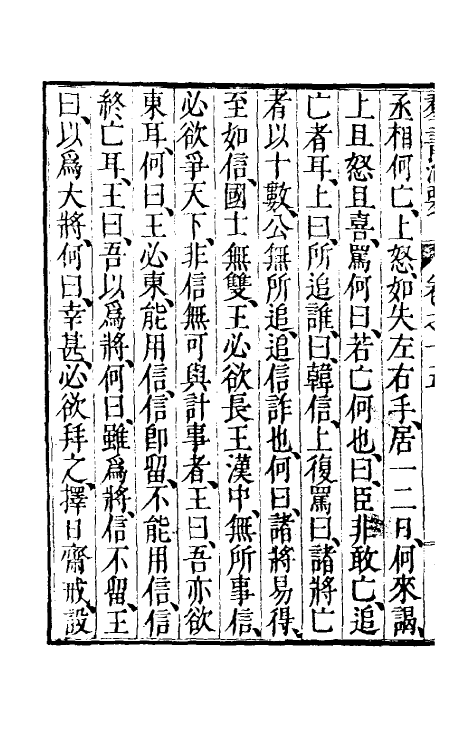 羣書治要 卷之十五
丞相何亡、上怒、如失左右手、居一二日、何來謁、
上且怒且喜、罵何曰、若亡何也、曰、臣非敢亡、追
亡者耳、上曰、所追誰、曰、韓信、上復罵曰、諸將亡
者以十數、公無所追、追信詐也、何曰、諸將易得、
至如信、國士無雙、王必欲長王漢中、無所事信、
必欲爭天下、非信無可與計事者、王曰、吾亦欲
東耳、何曰、王必東、能用信、信卽留、不能用信、信
終亡耳、王曰、吾以爲將、何曰、雖爲將、信不留、王
曰、以爲大將、何曰、幸甚、必欲拜之、擇日齋戒、設